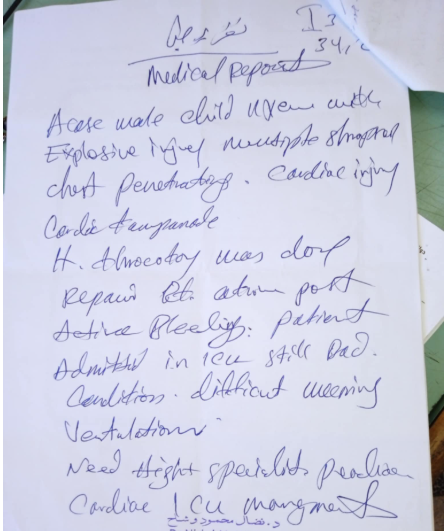 I 3
34,
Medical Report
A case male child with
Explosive injury multiple shrapnel
chest penetrating. Cardiac injury
Cardic tamponade
H. thoracotomy was done
Repair Rt. atrium post
Active Bleeding. Patient
Admitted in ICU still Bad.
Condition. difficult weening
Ventilation
Need Hight specialist
Cardiac ICU mangment